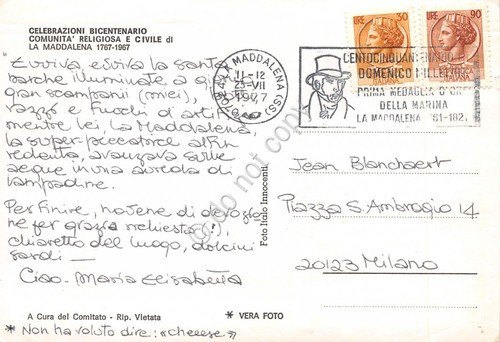 CELEBRAZIONI BICENTENARIO
COMUNITA' RELIGIOSA E CIVILE di
LA MADDALENA 1767-1967
Evviva evviva la santa
barche illuminate a gi
gran scampanii (miei),
razzi e fuochi di artifi
mentre lei, La Maddalena,
la super-peccatrice alfin
redenta, avanzava sulle
acque in una aureola di
lampadine.
Per finire, novene di
ne per grazia richiesta (!),
chiaretto del luogo, dolcini
sardi —
Ciao. Maria Elisabetta
A Cura del Comitato - Rip. Vietata
* VERA FOTO
* Non ha voluto dire: «cheeese»
Foto Italo Innocenti
LIRE 30
LIRE 90
LA MADDALENA (SS)
11-12
25-VII
1987
CENTOCINQUANTENARIO DI
DOMENICO MILLELIRE
PRIMA MEDAGLIA D'ORO
DELLA MARINA
LA MADDALENA
Jean Blanchaert
Piazza S. Ambrogio 14
20123 Milano
do not copy